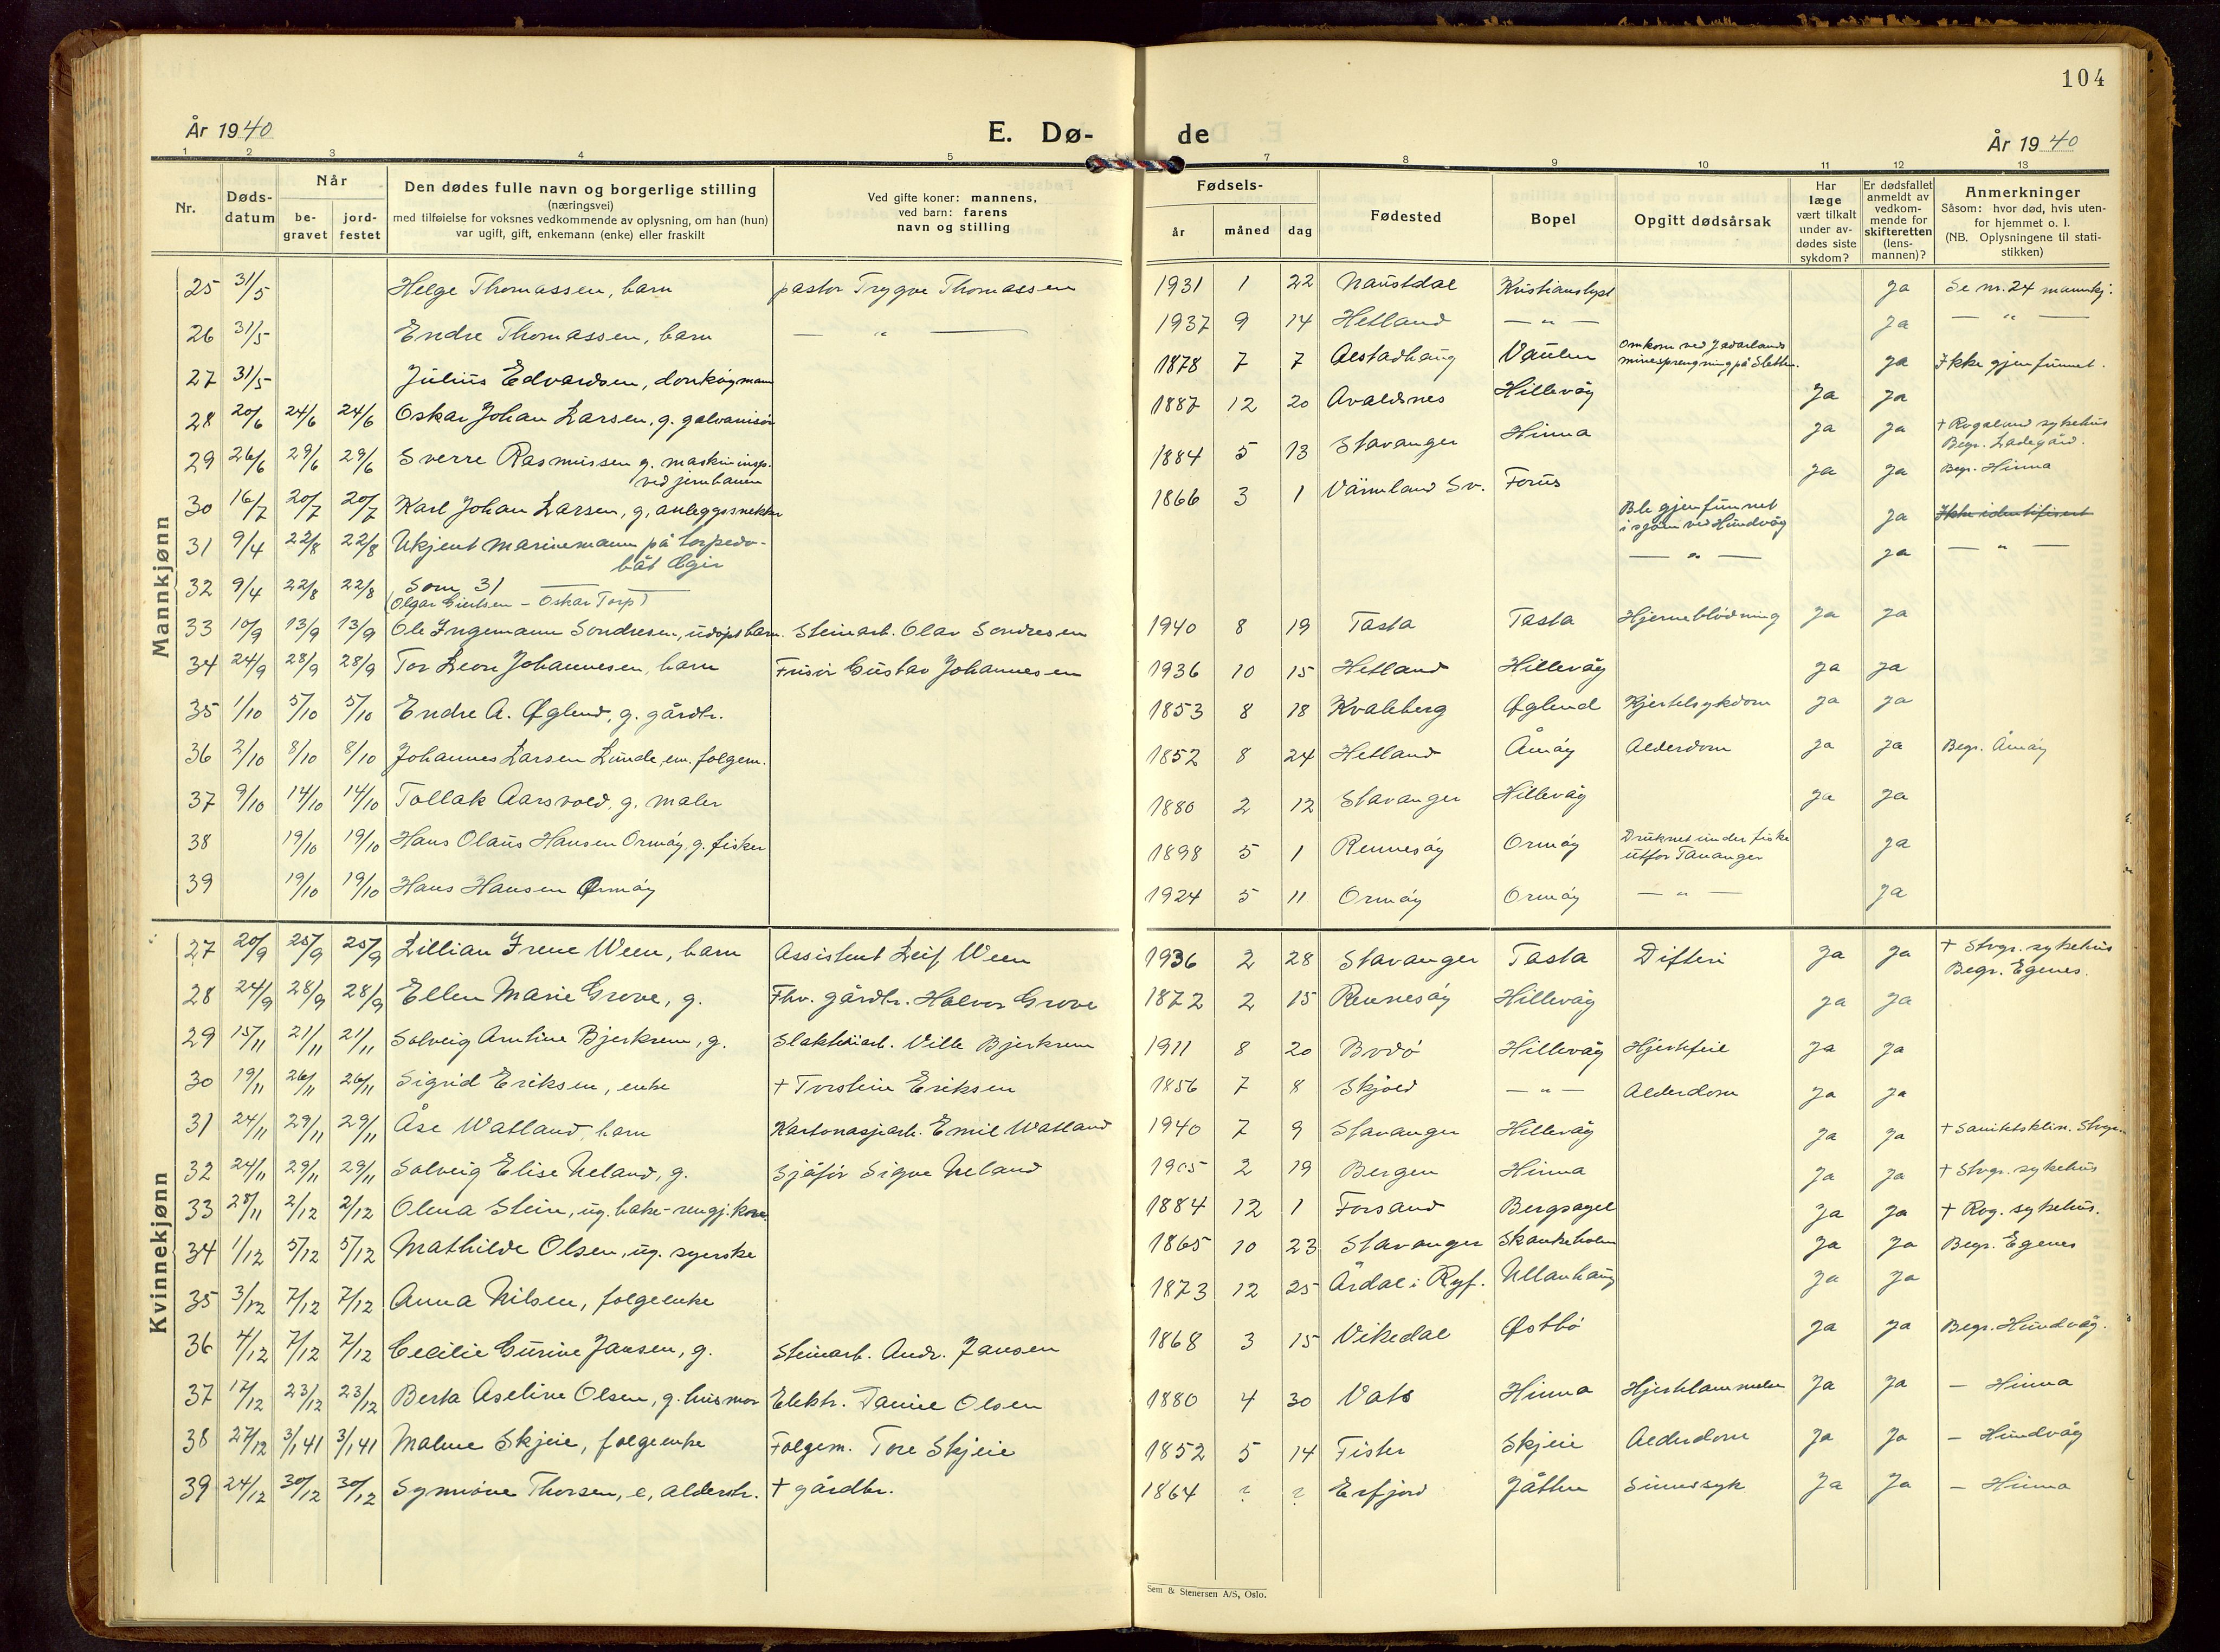 104
År 1940
E. Dø-
de
År 1940
1 2 3 4 5 7 8 9 10 11 12 13
Nr.
Døds-
datum
Når
be-
gravet
jord-
festet
Den dødes fulle navn og borgerlige stilling
(næringsvei)
med tilføielse for voksnes vedkommende av oplysning, om han (hun)
var ugift, gift, enkemann (enke) eller fraskilt
Ved gifte koner: mannens,
ved barn: farens
navn og stilling
Fødsels-
år måned dag
Fødested
Bopel
Opgitt dødsårsak
Har
læge
vært tilkalt
under av-
dødes siste
sykdom?
Er dødsfallet
anmeldt av
vedkom-
mende for
skifteretten
(lens-
mannen)?
Anmerkninger
Såsom: hvor død, hvis uten-
for hjemmet o. l.
(NB. Oplysningene til stati-
stikken)
Mannkjønn
25 31/5 Helge Thomassen, barn pastor Trygve Thomassen 1931 1 22 Naustdal Kristianslyst ja Se nr. 24 mannkj.
26 31/5 Endre Thomassen, barn — " — 1937 9 14 Hetland — " — ja — " —
27 31/5 Julius Edvardsen, donkøymann 1878 7 7 Vaulen Omkom ved Jadarlands
minesprengning på Sletten. ja Ikke gjenfunnet.
28 20/6 24/6 24/6 Oskar Johan Larsen, g. galvanisør 1887 12 20 Avaldsnes Hillevåg Ja ja
29 26/6 29/6 29/6 Sverre Rasmussen g. maskininsp.
ved jernbanen 1884 5 13 Stavanger Hinna ja ja + Rogaland sykehus
Begr. Ladegård.
30 16/7 20/7 20/7 Karl Johan Larsen, g, anleggssnekker 1866 3 1 Värmland Sv. Forus ja ja Begr. Hinna
31 9/4 22/8 22/8 Ukjent marinemann på torpedo-
båt Ægir Ble gjenfunnet
i sjøen ved Hundvåg ja Ikke identifisert
32 9/4 22/8 22/8 Som 31 — " — ja — " —
(Olgar Giertsen - Oskar Torp)
33 10/9 13/9 13/9 Ole Ingemann Sondresen, udøpt barn. Steinarb. Olav Sondresen 1940 8 19 Tasta Tasta Hjerneblødning ja ja
34 24/9 28/9 28/9 Tor Leon Johannesen, barn Frisør Gustav Johannesen 1936 10 15 Hetland Hillevåg ja ja
35 1/10 5/10 5/10 Endre A. Øglend, g. gårdbr. 1853 8 18 Kvaleberg Øglend Kjertelsykdom ja ja
36 2/10 8/10 8/10 Johannes Larsen Lunde, em. folgem. 1852 8 24 Hetland Åmøy Alderdom ja ja Begr. Åmøy
37 9/10 14/10 14/10 Tollak Aarsvold, g. maler 1880 2 12 Stavanger Hillevåg ja ja
38 19/10 19/10 Hans Olaus Hansen Ormøy, g. fisker 1898 5 1 Rennesøy Ormøy Druknet under fiske
utfor Tananger ja
39 19/10 19/10 Hans Hansen Ormøy 1924 5 11 Ormøy Ormøy — " — ja
Kvinnekjønn
27 20/9 25/9 25/9 Lillian Irene Ween, barn Assistent Leif Ween 1936 2 28 Stavanger Tasta Difteri ja ja + Stvgr. sykehus
Begr. Egenes.
28 24/9 28/9 28/9 Ellen Marie Grove, g. Fhv. gårdbr. Halvor Grove 1872 2 15 Rennesøy Hillevåg ja ja
29 15/11 21/11 21/11 Solveig Arntine Bjerkrem, g. Slakteriarb. Ville Bjerkrem 1911 8 20 Bodø Hillevåg Hjertefeil ja ja
30 19/11 26/11 26/11 Sigrid Eriksen, enke + Torstein Eriksen 1856 7 8 Skjold — " — Alderdom ja ja
31 24/11 29/11 29/11 Åse Watland, barn Kartonasjearb. Emil Watland 1940 7 9 Stavanger Hillevåg ja ja + Sanitetsklin. Stvgr.
32 24/11 29/11 29/11 Solveig Elise Ueland, g. Sjåfør Sigve Ueland 1905 2 19 Bergen Hinna ja ja + Stvgr. sykehus
33 28/11 2/12 2/12 Olena Stein, ug. bake-rengj.kone. 1884 12 1 Forsand Bergsagel ja ja + Rog. sykehus.
34 1/12 5/12 5/12 Mathilde Olsen, ug. syerske 1865 10 23 Stavanger Skankeholm ja ja Begr. Egenes
35 3/12 7/12 7/12 Anna Nilsen, folgeenke 1873 12 25 Årdal i Ryf. Ullanhaug ja ja
36 4/12 7/12 7/12 Cecilie Gurine Jansen, g. Steinarb. Andr. Jansen 1868 3 15 Vikedal Østbø ja ja Begr. Hundvåg.
37 17/12 23/12 23/12 Berta Aseline Olsen, g. husmor Elektr. Daniel Olsen 1880 4 30 Vats Hinna Hjertelammelse ja ja — Hinna
38 27/12 3/1 41 3/1 41 Malene Skjeie, folgeenke Folgem. Tore Skjeie 1852 5 14 Fister Skjeie Alderdom ja ja — Hundvåg
39 24/12 30/12 30/12 Synnøve Thorsen, e, alderstr. + gårdbr. 1864 ? ? Erfjord Jåtten Sinnssyk Ja Ja — Hinna
Sem & Stenersen A/S, Oslo.